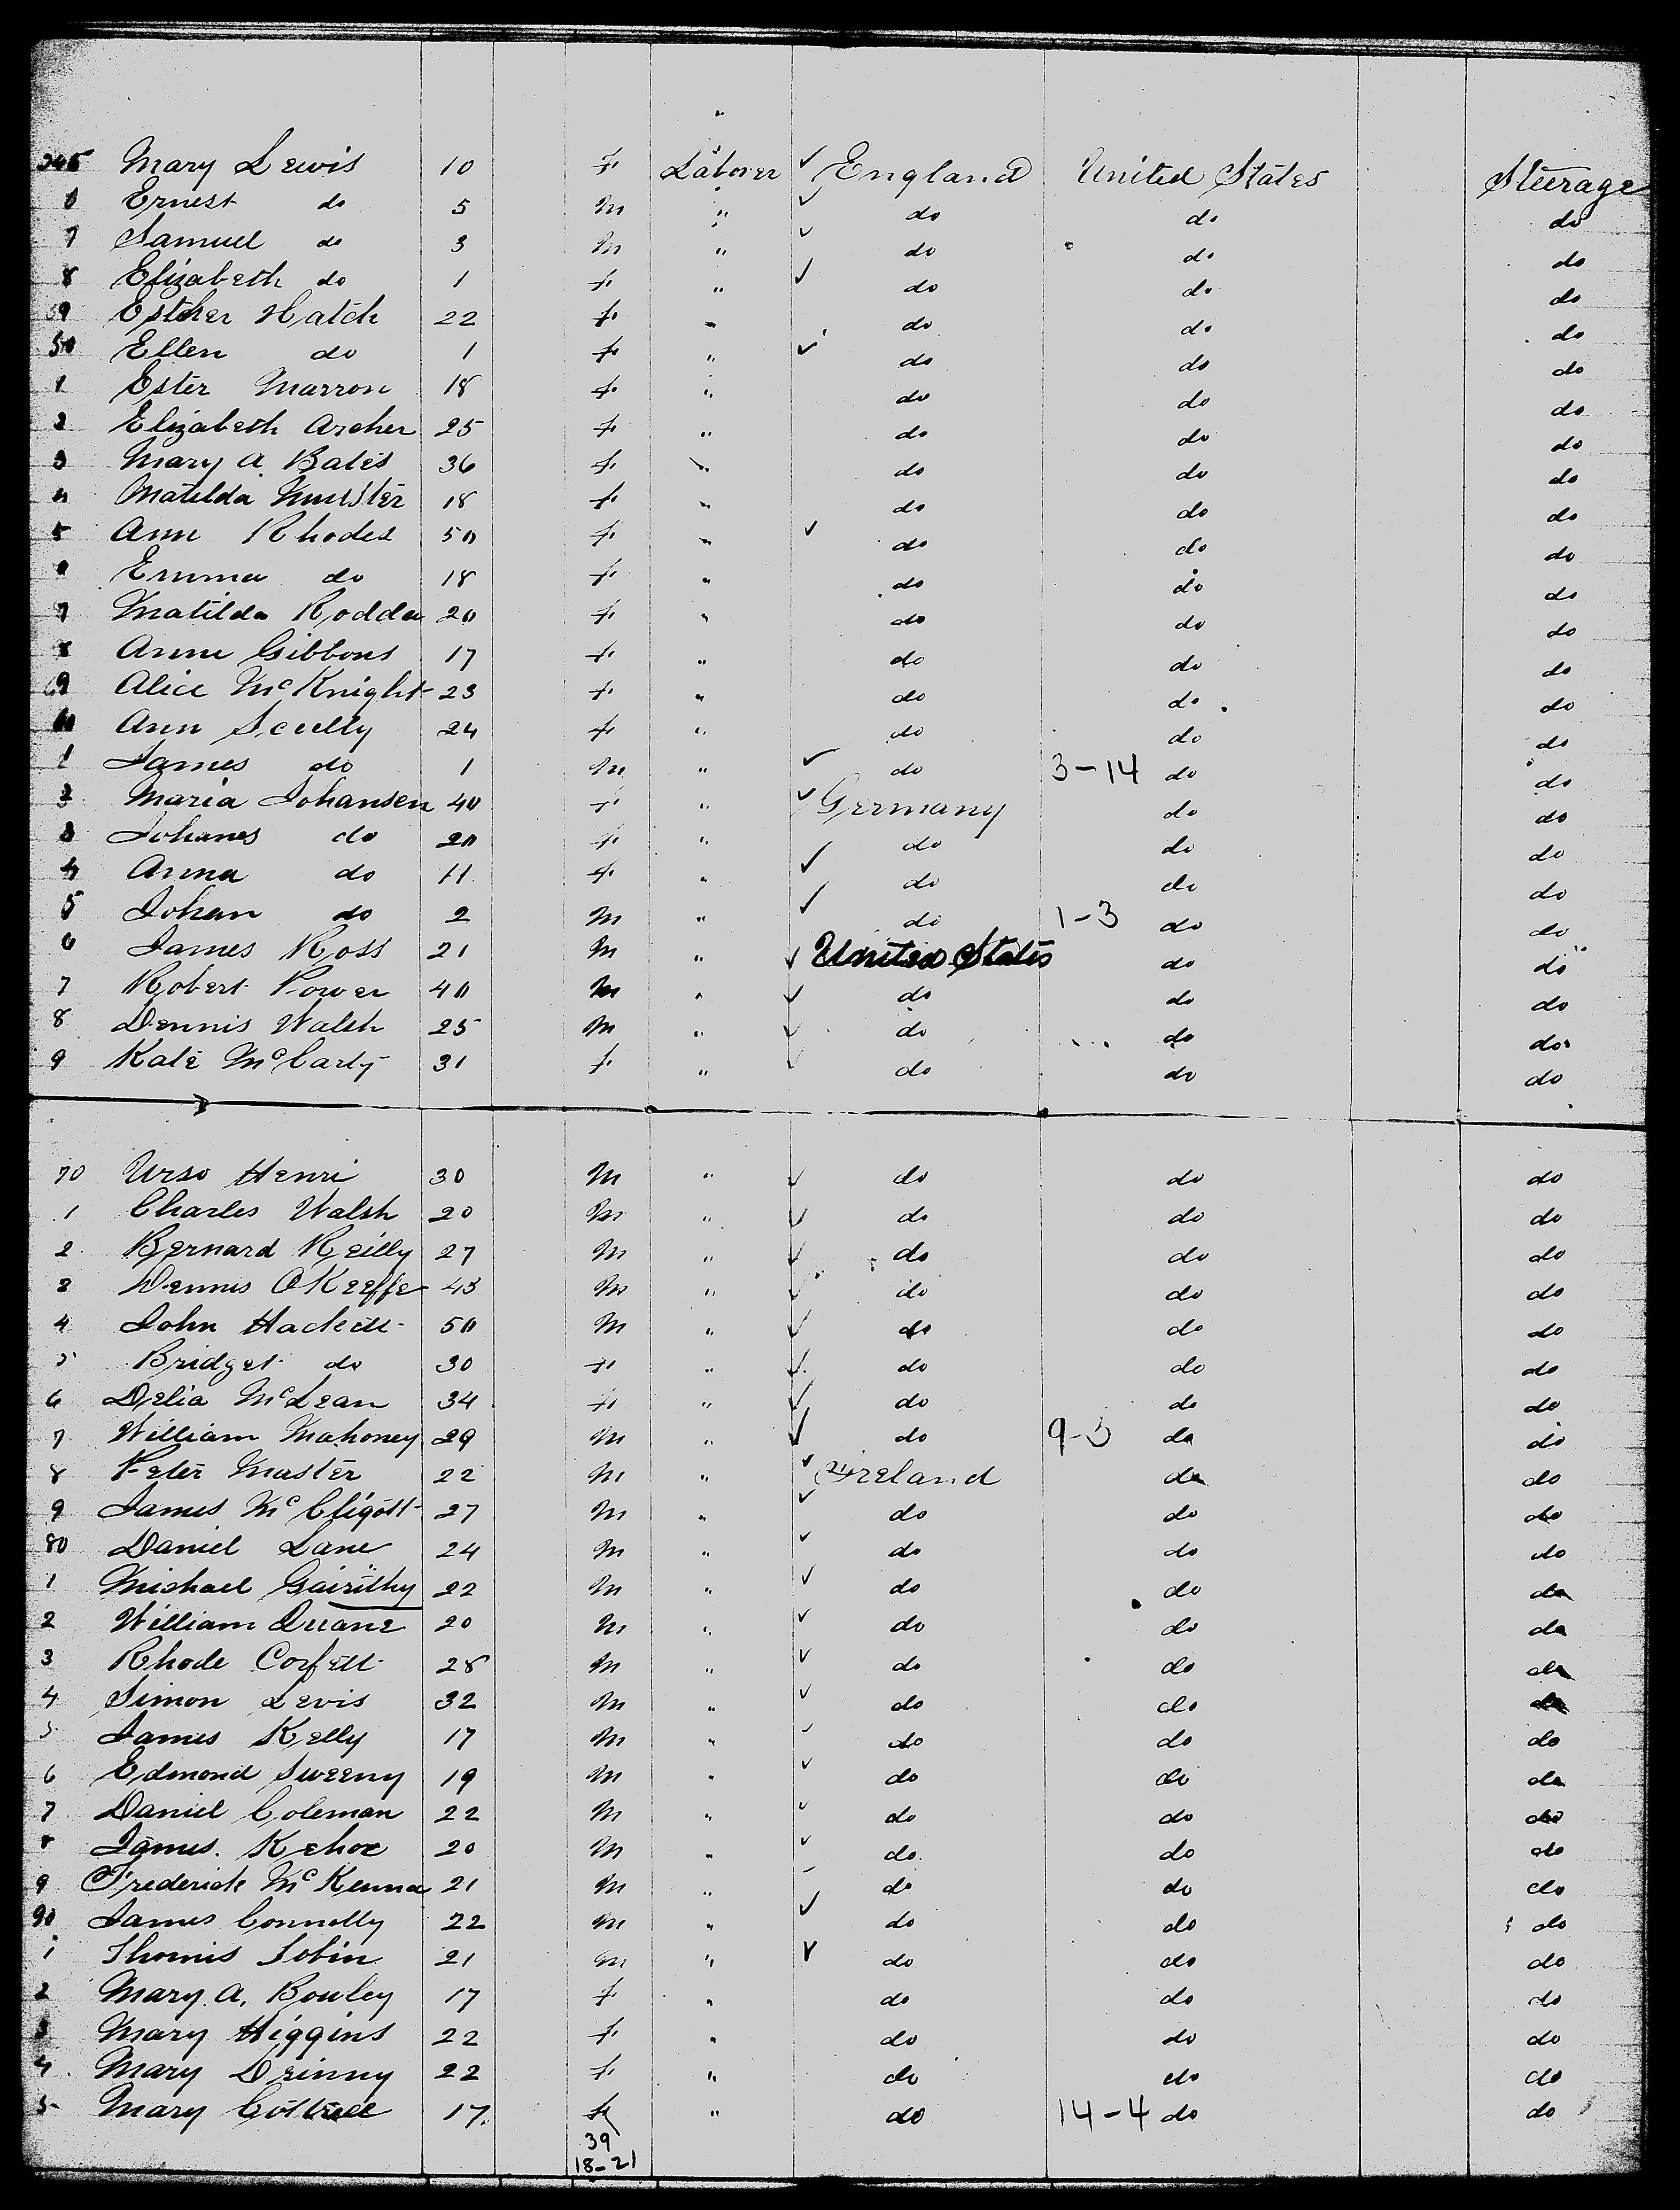 245 Mary Lewis 10 F Laborer ✓ England United States Steerage
6 Ernest do 5 M " ✓ do do do
7 Samuel do 3 M " ✓ do do do
8 Elizabeth do 1 F " ✓ do do do
9 Esther Hatch 22 F " do do do
50 Ellen do 1 F " ✓ do do do
1 Ester Marron 18 F " do do do
2 Elizabeth Archer 25 F " do do do
3 Mary A. Bates 36 F " do do do
4 Matilda 18 F " do do do
5 Ann Rhodes 50 F " ✓ do do do
6 Emma do 18 F " do do do
7 Matilda Rodda 20 F " do do do
8 Anne Gibbons 17 F " do do do
9 Alice McKnight 23 F " do do do
60 Ann Scully 24 F " do do do
1 James do 1 M " ✓ do 3-14 do do
2 Maria Johansen 40 F " ✓ Germany do do
3 Johanes do 20 F " do do do
4 Anna do 11 F " ✓ do do do
5 Johan do 2 M " ✓ do 1-3 do do
6 James Ross 21 M " ✓ United States do do
7 Robert Power 40 M " ✓ do do do
8 Dennis Walsh 25 M " ✓ do do do
9 Kate McCarty 31 F " ✓ do do do
70 Urso Henri 30 M " ✓ do do do
1 Charles Walsh 20 M " ✓ do do do
2 Bernard Reilly 27 M " ✓ do do do
3 Dennis OKeeffe 43 M " ✓ do do do
4 John Hackett 50 M " ✓ do do do
5 Bridget do 30 F " ✓ do do do
6 Delia McLean 34 F " ✓ do do do
7 William Mahoney 29 M " ✓ do 9-3 do do
8 Peter Master 22 M " ✓ Ireland do do
9 James McCligott 27 M " ✓ do do do
80 Daniel Lane 24 M " ✓ do do do
1 Michael 22 M " ✓ do do do
2 William Duane 20 M " ✓ do do do
3 Rhode Corfett 28 M " ✓ do do do
4 Simon Levis 32 M " ✓ do do do
5 James Kelly 17 M " ✓ do do do
6 Edmond Sweeny 19 M " ✓ do do do
7 Daniel Coleman 22 M " ✓ do do do
8 James Kehoe 20 M " ✓ do do do
9 Frederick McKenna 21 M " do do do
90 James Connolly 22 M " ✓ do do do
1 Thomis Tobin 21 M " ✓ do do do
2 Mary A. Bowley 17 F " do do do
3 Mary Higgins 22 F " do do do
4 Mary Deinny 22 F " do do do
5 Mary Cottrell 17 F " do 14-4 do do
39
18-21